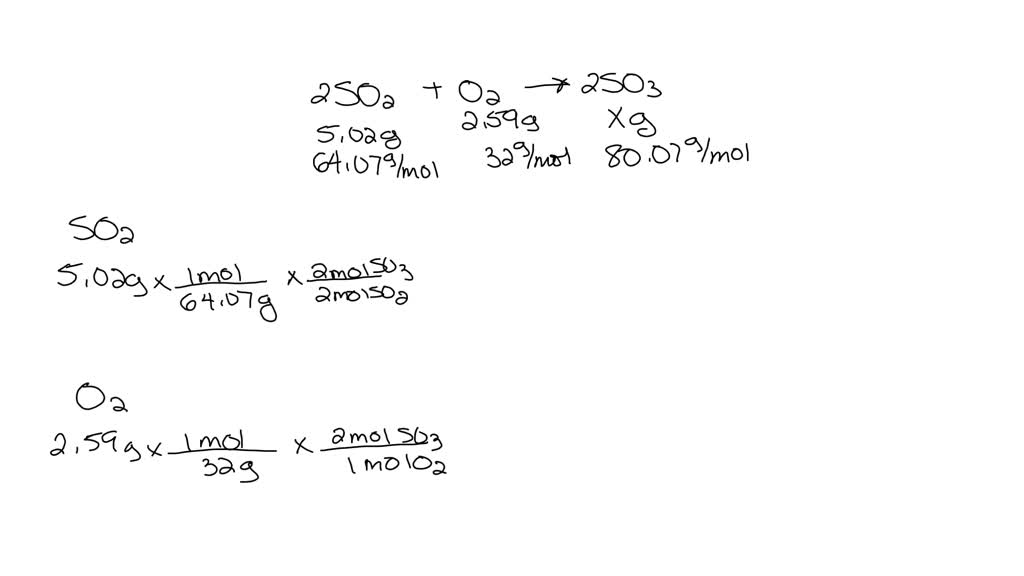 2SO₂ + O₂ → 2SO₃
5.02g 2.59g xg
64.07g/mol 32g/mol 80.07g/mol
SO₂
5.02g x 1mol/64.07g x 2molSO₃/2molSO₂
O₂
2.59g x 1mol/32g x 2molSO₃/1molO₂